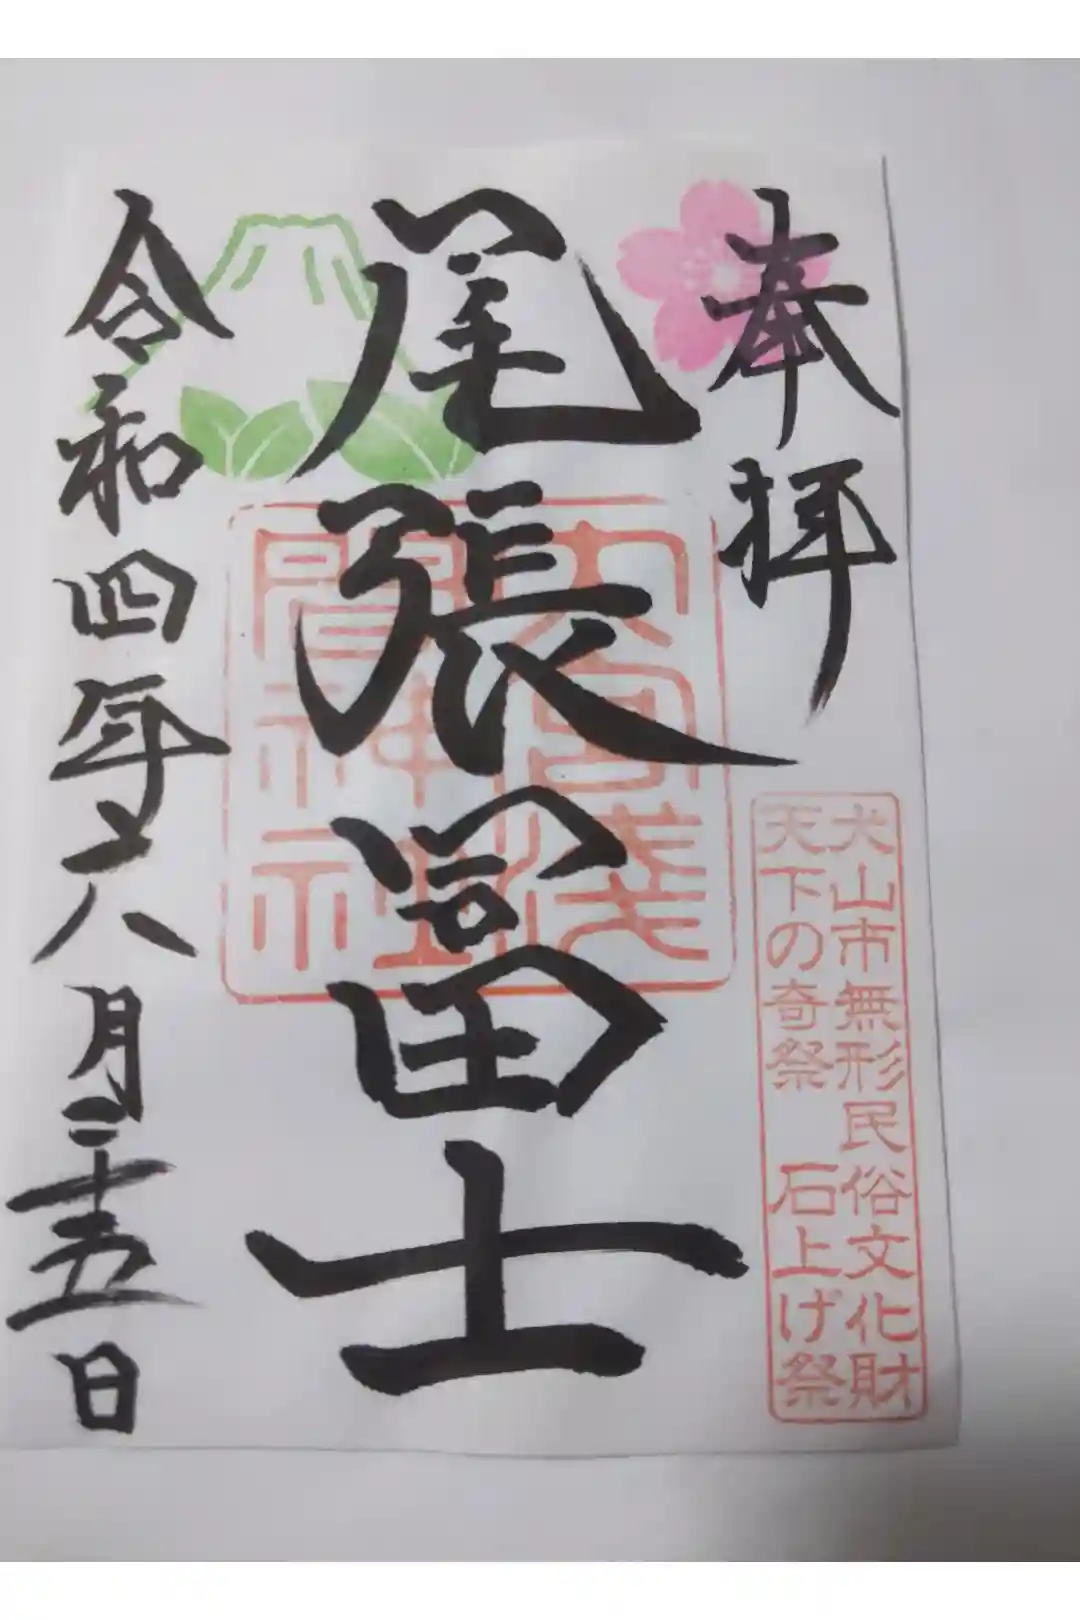 奉拝
犬山市無形民俗文化財
天下の奇祭 石上げ祭
尾張冨士
大宮浅
間神社
令和四年六月二十五日